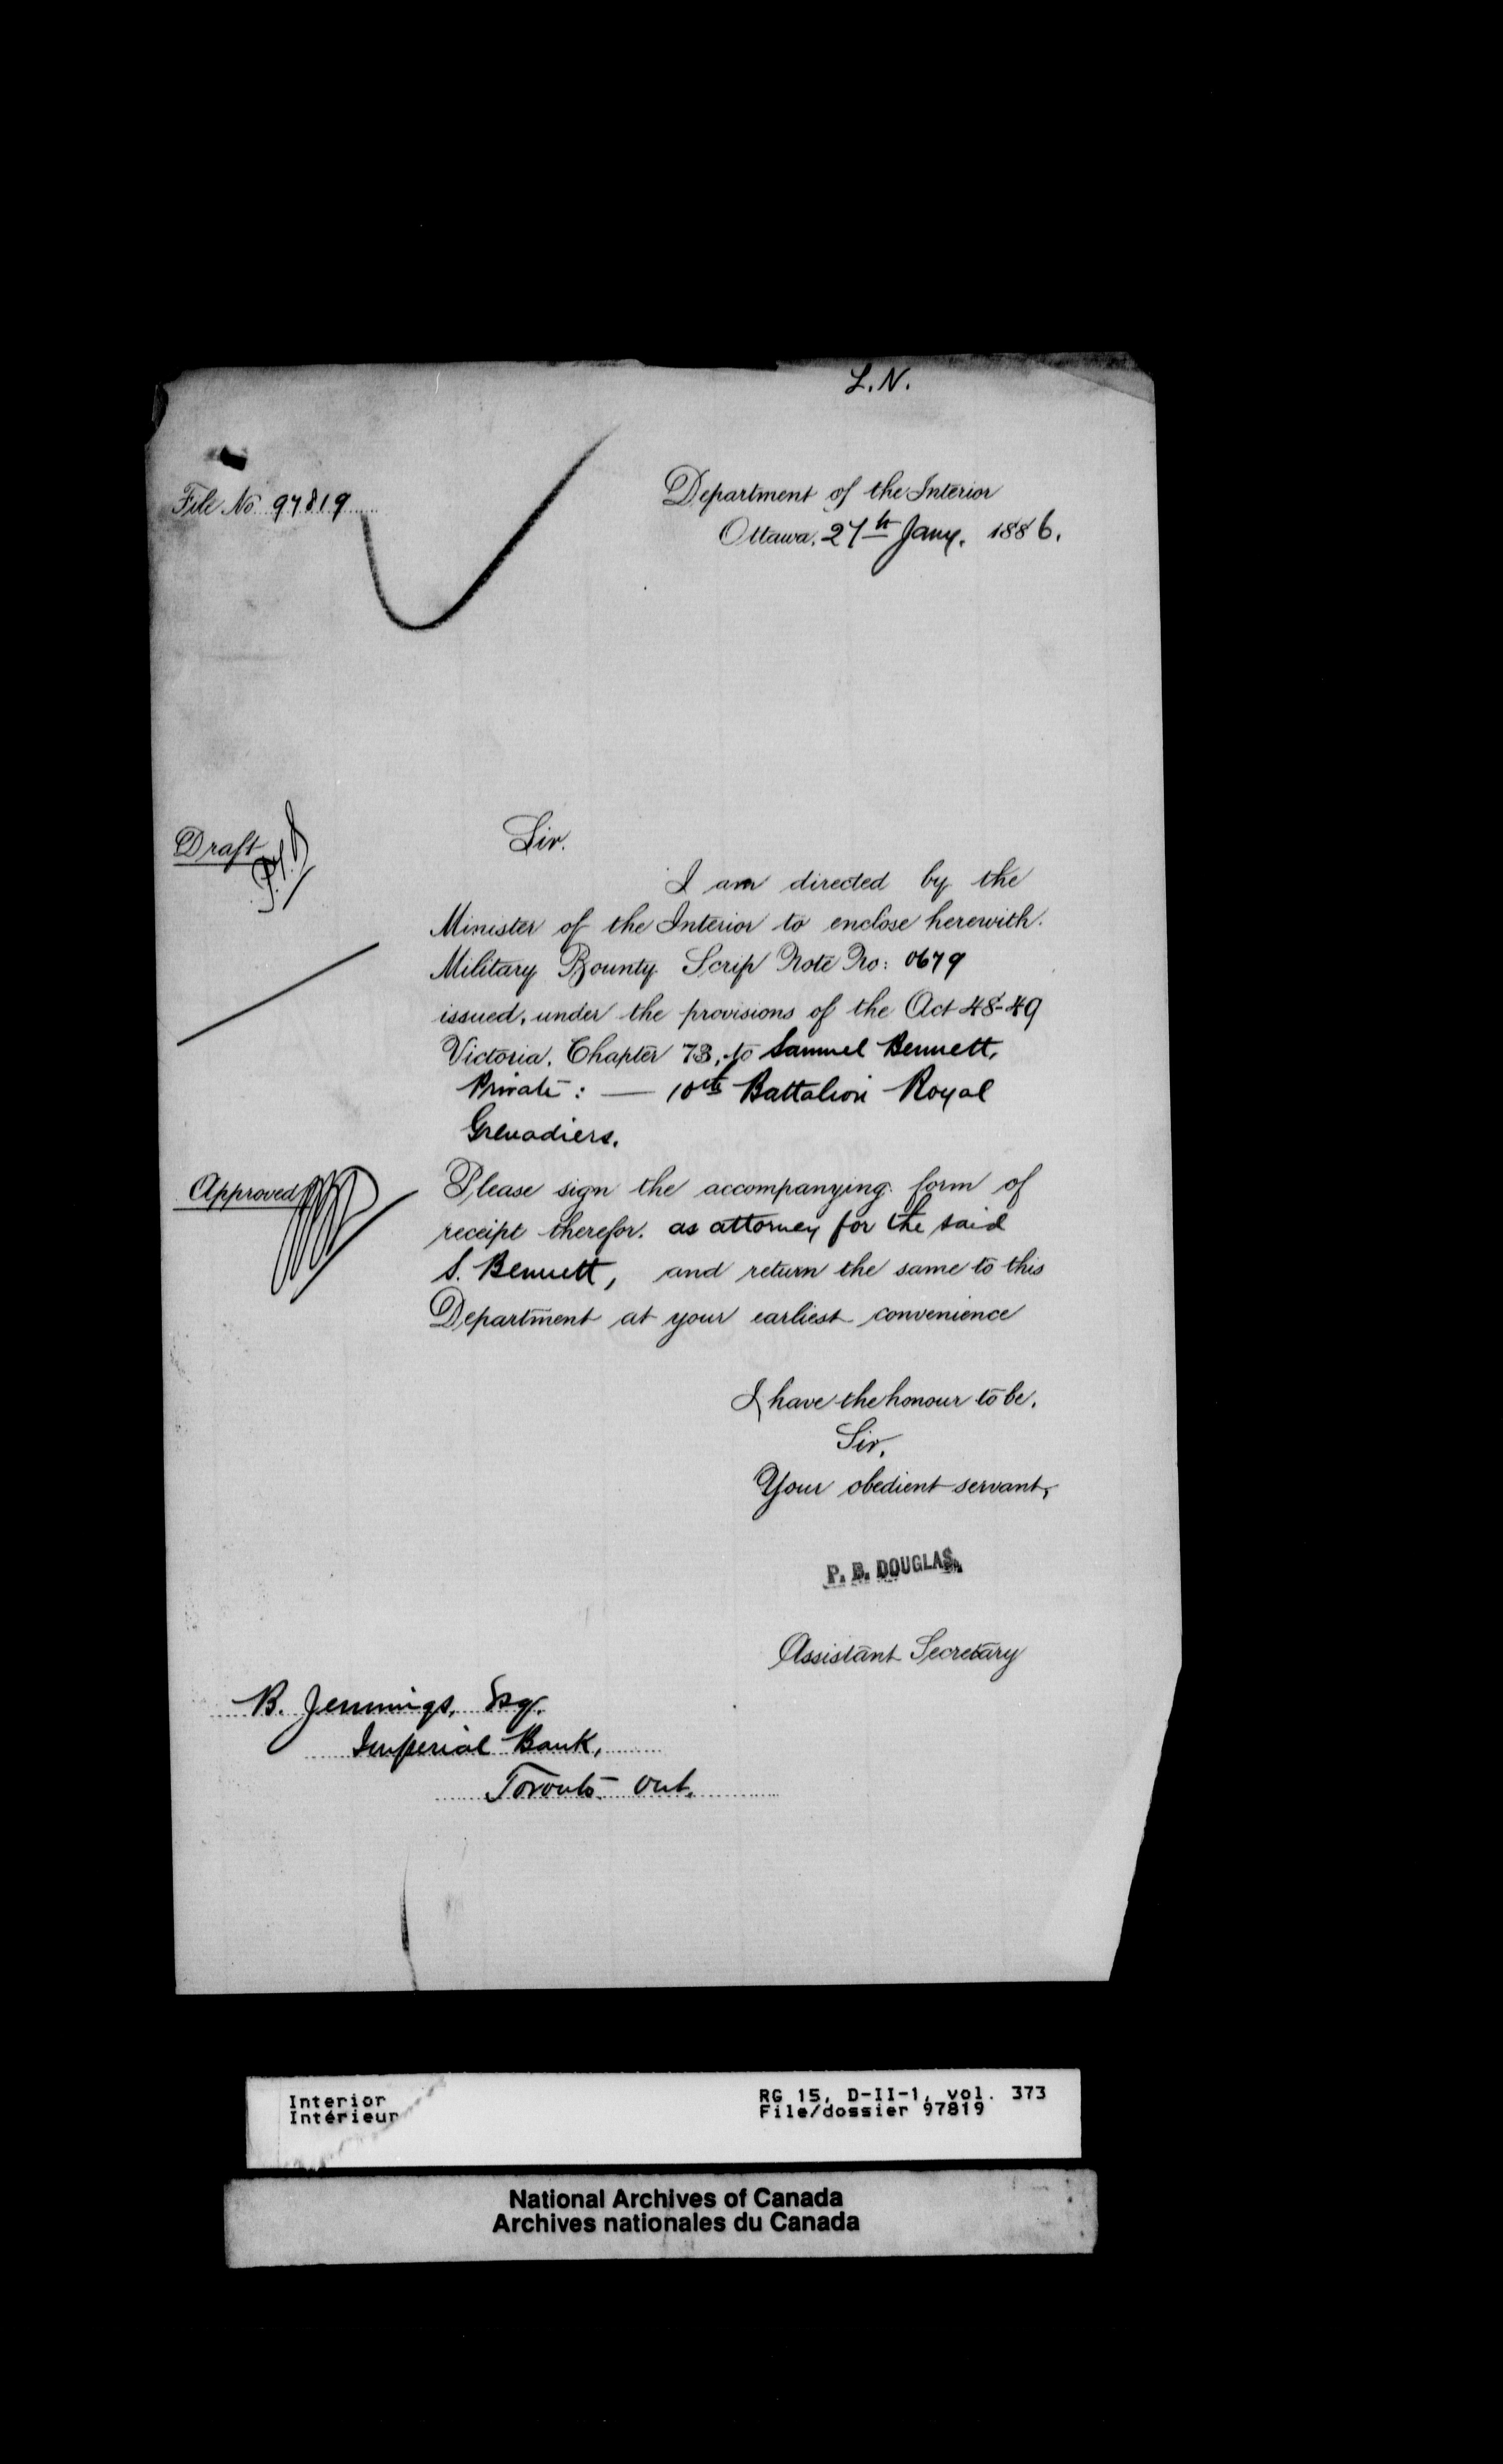 L.N.
File No 97819
Department of the Interior
Ottawa, 27th Jany. 1886.
Draft
Sir.
I am directed by the
Minister of the Interior to enclose herewith.
Military Bounty Scrip Note No: 0679
issued, under the provisions of the Act 48-49
Victoria, Chapter 73, to Samuel Bennett,
Private: — 10th Battalion Royal
Grenadiers.
Approved
Please sign the accompanying form of
receipt therefor. as attorney for the said
S. Bennett, and return the same to this
Department at your earliest convenience
I have the honour to be,
Sir,
Your obedient servant,
P. B. DOUGLAS,
Assistant Secretary
B. Jennings, Esq.
Imperial Bank,
Toronto - Ont.
Interior
Intérieur
RG 15, D-II-1, vol. 373
File/dossier 97819
National Archives of Canada
Archives nationales du Canada